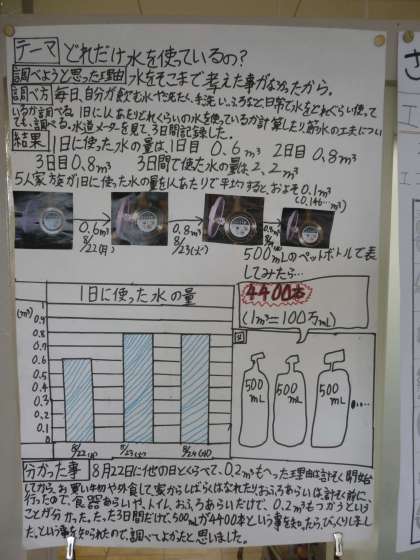 テーマ どれだけ水を使っているの?
調べようと思った理由 水をそこまで考えた事がなかったから。
調べ方 毎日、自分が飲む水や洗たく、手洗い、ふろなど、日常で水をどれぐらい使って
いるか調べる。1日に1人あたりどれぐらいの水を使っているか計算したり、節水の工夫につい
ても、調べる。水道メーターを見て、3日間記録した。
結果 1日に使った水の量は、1日目 0.6m³ 2日目 0.8m³
3日目 0.8m³ 3日間で使た水の量は、2.2m³
5人家族が1日に使った水の量を1人あたりで平均すると、およそ0.1m³
(0.146…m³)
0.6m³
8/22(月)
0.8m³
8/23(火)
0.8m³
500mLのペットボトルで表
してみたら…
4400本
(1m³=100万mL)
1日に使った水の量
(m³)
1
0.9
0.8
0.7
0.6
0.5
0.4
0.3
0.2
0.1
0
8/22(月)
8/23(火)
8/24(水)
500mL
500mL
500mL
……
分かった事 8月22日に他の日とくらべて、0.2m³もへった理由は計そく開始
してから、お買い物や外食して、家からしばらくはなれたり、おふろあらいは、計そく前に、
行ったので、食器あらいや、トイレ、おふろあらいだけで、0.2m³もつかうという
ことが分かった。たった3日間だけで、500mLが4400本という事を知ったら、びっくりしま
した。という事を知られたので、調べてよかったと思いました。